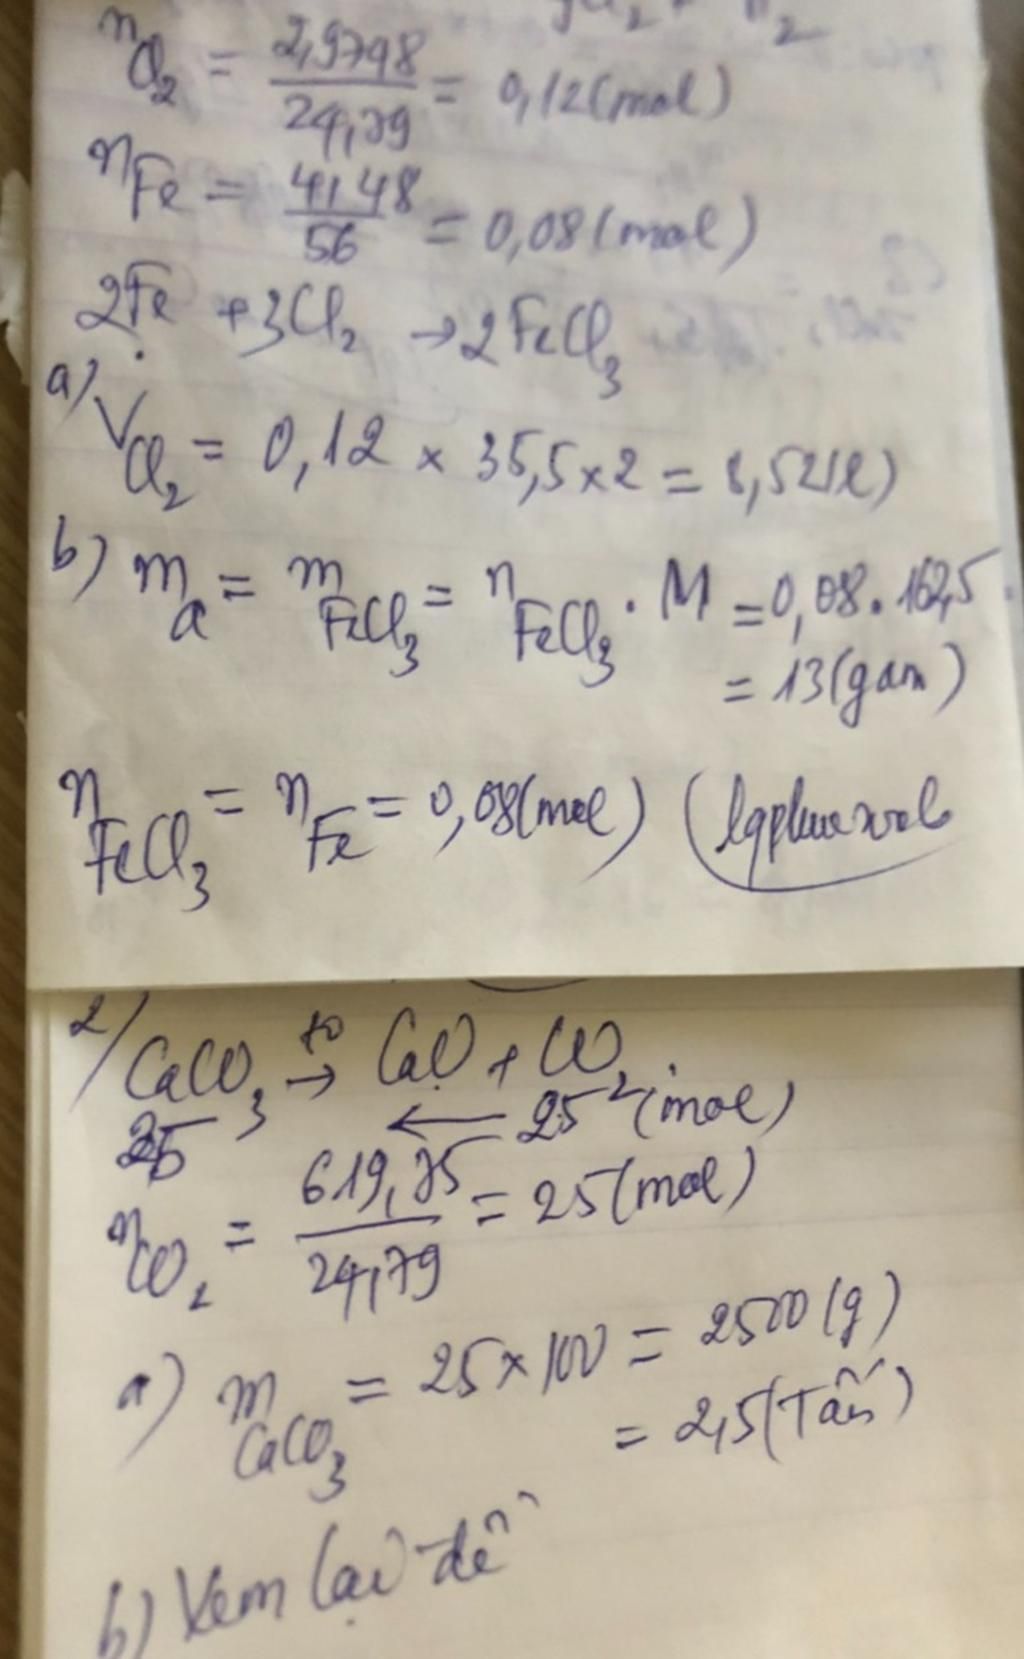 n Cl₂ = 2,9798 / 24,79 = 0,12 (mol)
n Fe = 4,48 / 56 = 0,08 (mol)
2Fe + 3Cl₂ → 2FeCl₃
a) V Cl₂ = 0,12 × 35,5 × 2 = 8,52 (l)
b) m a = m FeCl₃ = n FeCl₃ . M = 0,08 . 162,5
= 13 (gam)
n FeCl₃ = n Fe = 0,08 (mol)
2/ CaCO₃ t⁰→ CaO + CO₂
25 ← 25 (mol)
n CO₂ = 619,75 / 24,79 = 25 (mol)
a) m CaCO₃ = 25 × 100 = 2500 (g)
= 2,5 (Tấn)
b) Xem lại đề